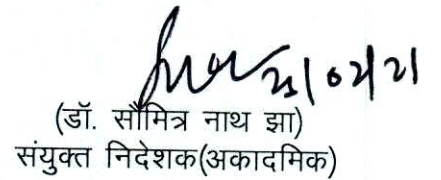 23/02/21
(डॉ. सौमित्र नाथ झा)
संयुक्त निदेशक(अकादमिक)